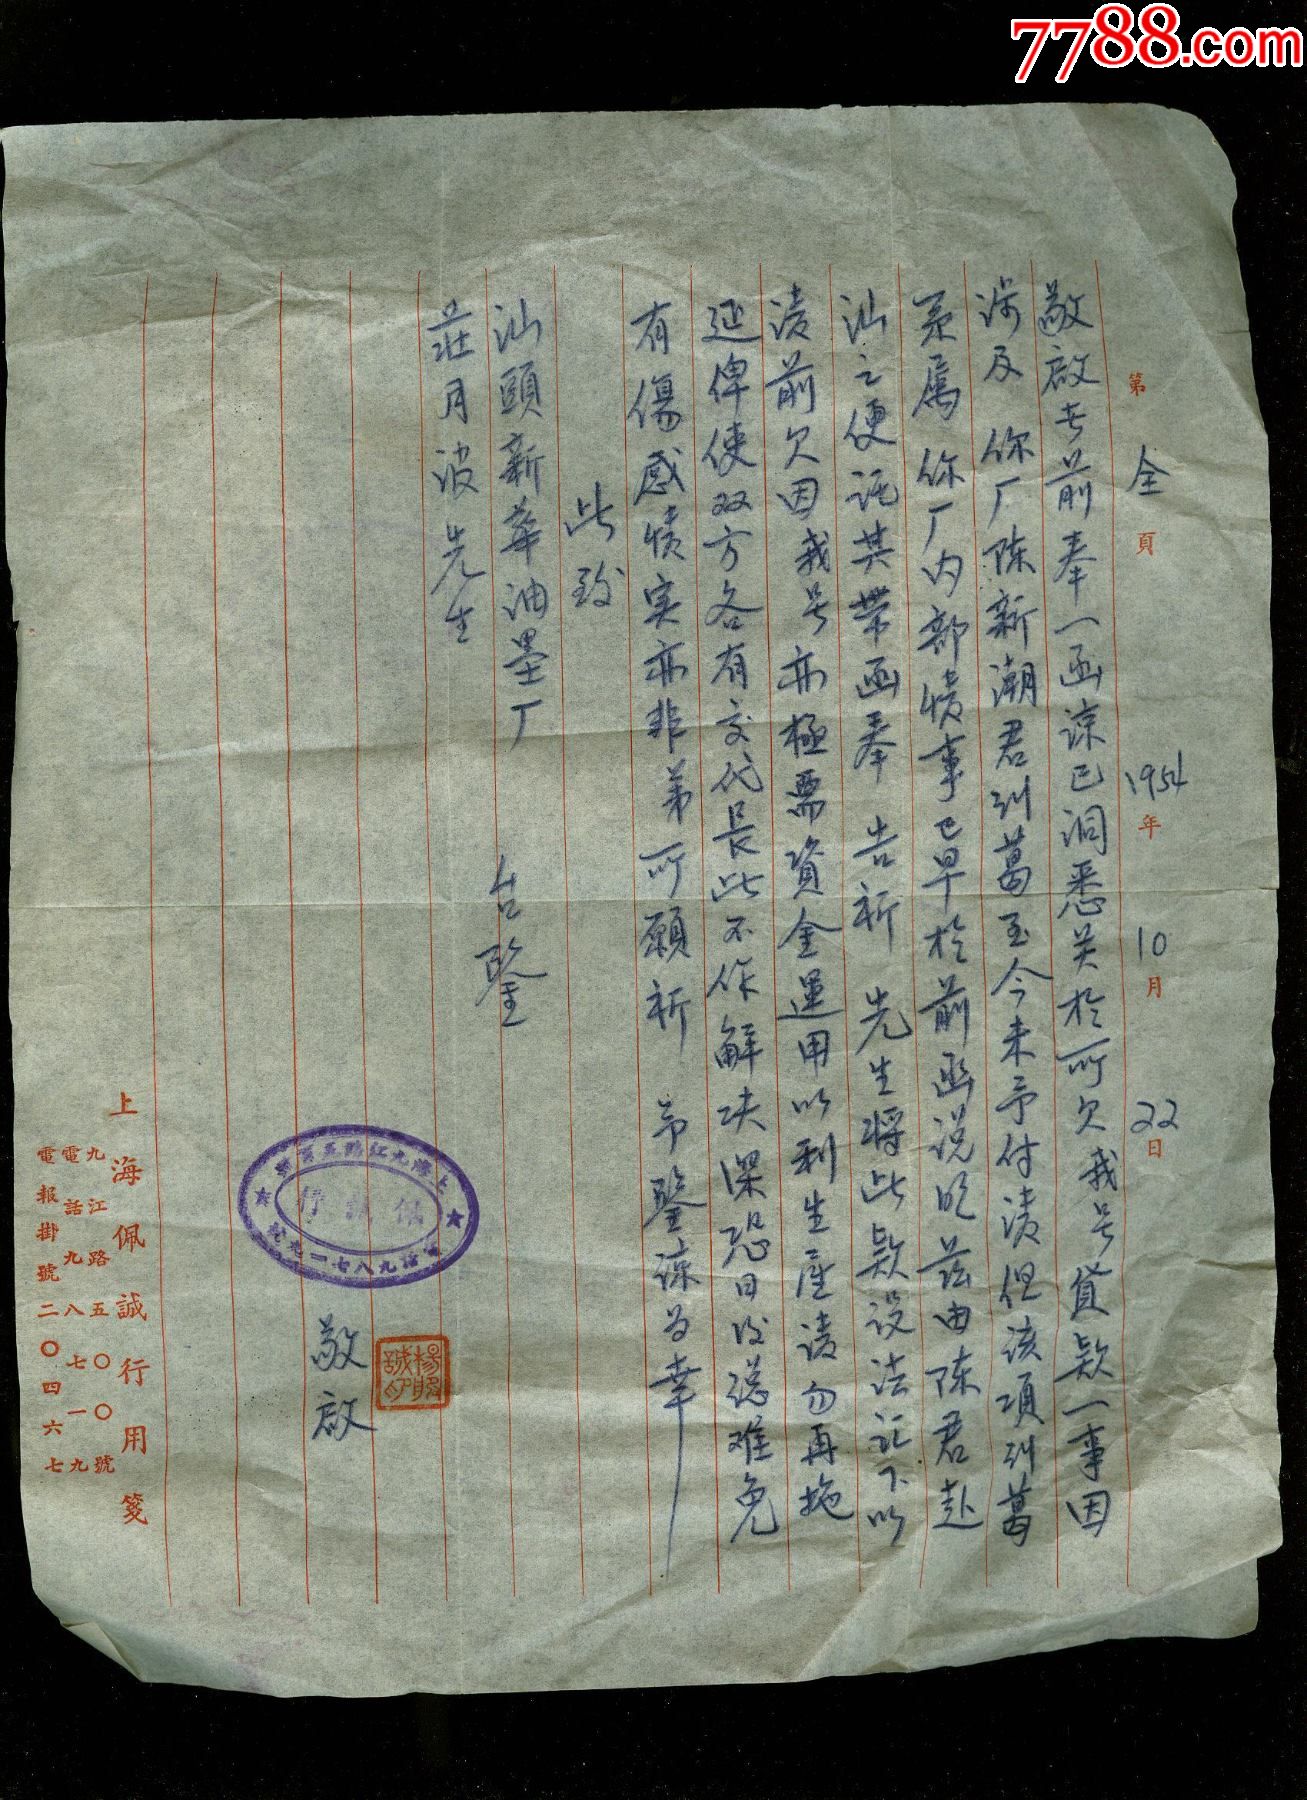 7788.com
第 全 頁 1954年 10月 22日
敬啟者前奉一函諒已洞悉关於所欠我号貨款一事因
涉及你厂陈新潮君糾葛至今未予付清但该項糾葛
系属你厂内部情事已早於前函说明兹由陈君赴
汕之便託其带函奉告祈先生将此款设法汇下以
清前欠因我号亦極需資金運用以利生產请勿再拖
延俾使双方各有交代長此不作解决深恐日後总难免
有傷感情实亦非弟所愿祈予鑒諒为幸
此致
汕頭新華油墨厂
莊月波先生 台鑒
敬啟
上海九江路五百号
佩誠行
電話九八七一九號
上海佩誠行用箋
九江路五〇〇號
電話九八七一九
電報掛號二〇四六七